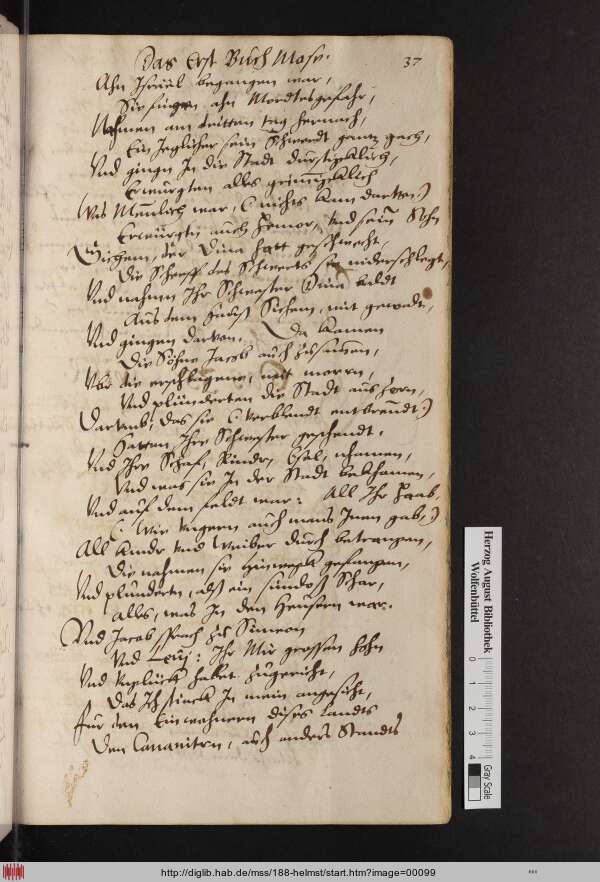 Das Erst Buch Mose.
37
Ahn Israel begangen war,
Sie fingen ahn Mordtesgefahr,
Nahmen am dritten tag hernach,
Ein Jeglicher sein Schwerdt gantz gach,
Vnd gingn In die Stadt durstigklich,
Erwurgten alles grimmigklich
Was Menlich war, (nichts kam dartten)
Erwurgtn auch Hemor, Vnd sein Sohn
Sichem, der Dina hatt geschwecht,
Die Scherpf des Schwerts sie niderschlegt,
Vnd namen Ihr Schwester Dina baldt
Aus dem Hauß Sichem, mit gewalt,
Vnd gingen darvon. Da kamen
Die Söhne Jacob auch zusamen,
Vbr die erschlagene,
Vnd plunderten die Stadt aus Zorn,
Darumb, das sie (verblendt entbrendt)
Hatten Ihre Schwester geschendt.
Vnd Ihre Schaf, Rinder, Esel, nhamen,
Vnd was sie In der Stadt bekhamen,
Vnd auf dem feldt war: All Ihr Haab,
(Wie vngern auch mans Inen gab,)
All Kinde Vnd Weiber durch betrangen,
Die nahmen sie hinwegk gefangen,
Vnd plunderten, alß ein Schar,
Alls, was In den Heusern war.
Vnd Jacob sprach zu Simeon
Vnd Levj: Ihr Mir grossen hohn
Vnd Vnglück habet zugericht,
Das Ich stinck In mein angesicht,
für den Einwohnern dises Landts
Den Cananitern, auch anders Standts
Herzog August Bibliothek
Wolfenbüttel
0 1 2 3 4
Gray Scale
http://diglib.hab.de/mss/188-helmst/start.htm?image=00099